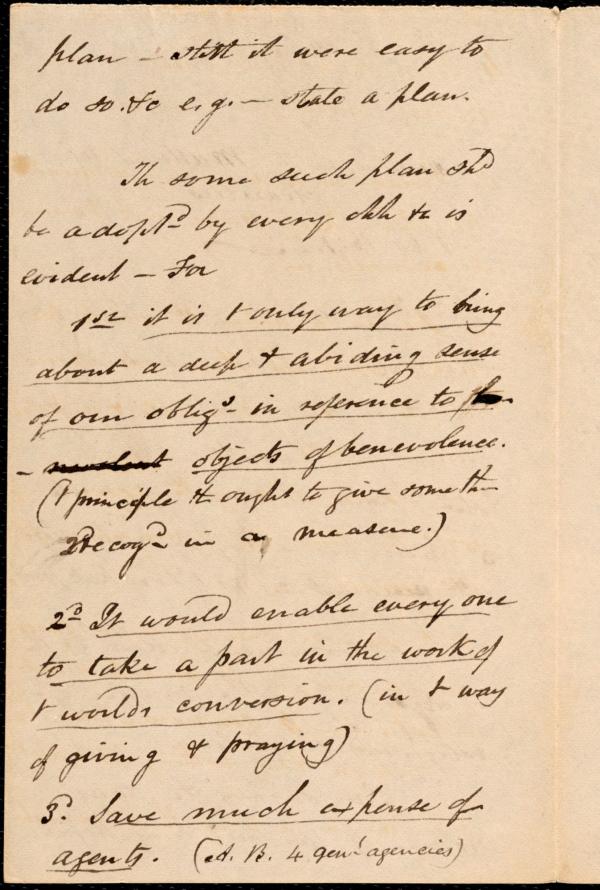 plan – still it were easy to
do so. &c e.g. – state a plan.
Th some such plan shd
be adoptd by every chh &c is
evident – For
1st it is t only way to bring
about a deep & abiding sense
of our obligs in reference to
– objects of benevolence.
(t principle tt ought to give someth
recogd in a measure.)
2d It would enable every one
to take a part in the work of
t worlds conversion. (in t way
of giving & praying)
3d. Save much expense of
agents. (A. B. 4 genl agencies)